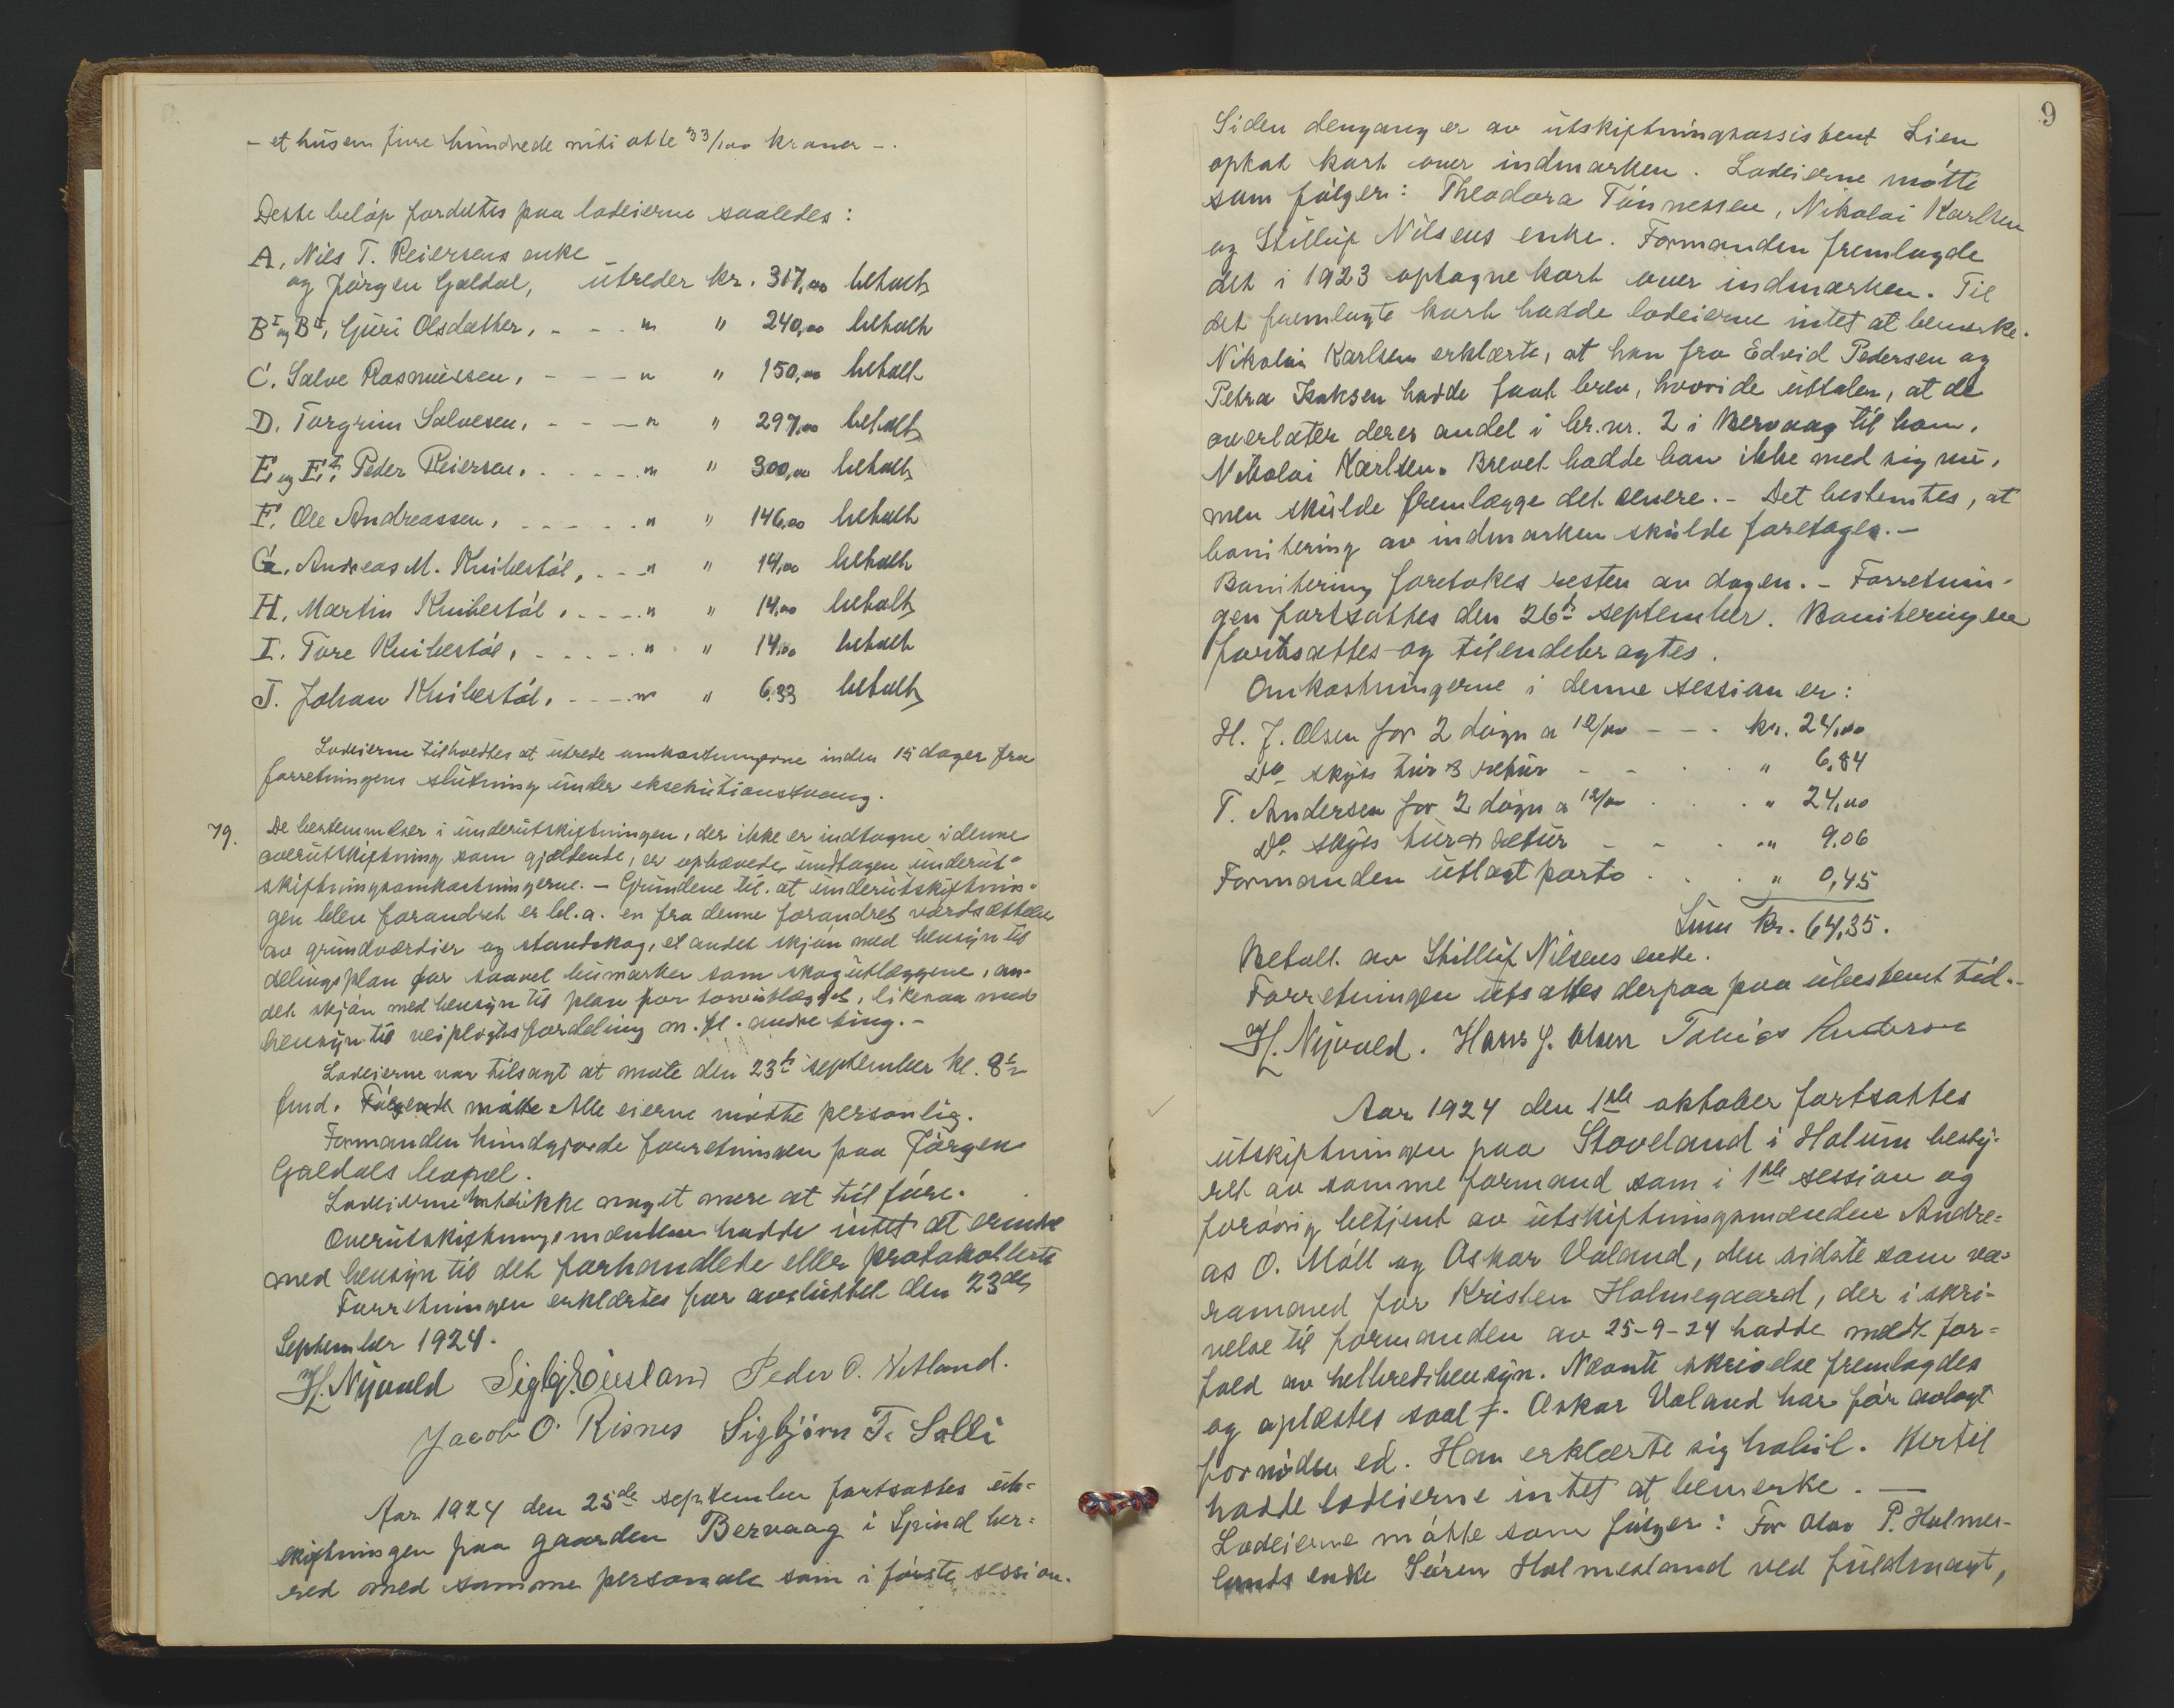 - et tusen fire hundrede niti otte 33/100 kroner -.
Dette beløp fordeltes paa lodeierne saaledes:
A, Nils T. Reiersens enke
og Jørgen Galdal, utreder kr. 317,00 betalt
B I og B II, Guri Olsdatter, - - - " " 240,00 betalt
C. Salve Rasmussen, - - - " " 150,00 betalt
D. Torgrim Salvesen, - - - " " 297,00 betalt
E og E I, Peder Reiersen, - - - " " 300,00 betalt
F. Ole Andreassen, - - - " " 146,00 betalt
G. Andreas M. Knibestøl, - - - " " 14,00 betalt
H. Martin Knibestøl, - - - " " 14,00 betalt
I. Tore Knibestøl, - - - " " 14,00 betalt
J. Johan Knibestøl, - - - " " 6,33 betalt
Lodeierne tilholdtes at utrede omkostningerne inden 15 dager fra
forretningens slutning under eksekutionstvang.
79. De bestemmelser i underutskiftningen, der ikke er indtagne i denne
overutskiftning som gjeldende, er ophævede undtagen underut-
skiftningsomkostningerne. - Grundene til at underutskiftnin-
gen blev forandret er bl. a. en fra denne forandret værdsættelse
av grundværdier og standskog, et andet skjøn med hensyn til
delingsplan for saavel heimarker som skogutlæggene, an-
det skjøn med hensyn til plan for torvutlægget, likesaa med
hensyn til veipligtsfordeling m. fl. andre ting. -
Lodeierne var tilsagt at møte den 23de september kl. 8½
fmd. Følgende møtte Alle eierne møtte personlig.
Formanden kundgjorde forretningen paa Jørgen
Galdals bopæl.
Lodeierne hadde ikke noget mere at tilføre.
Overutskiftningsmændene hadde intet at erindre
med hensyn til det forhandlede eller protokollerte
Forretningen erklærtes for avsluttet den 23de
September 1924.
H. Nyvold Sigbj. Eiesland Peder O. Vetland.
Jacob O. Risnes Sigbjørn T. Solli
Aar 1924 den 25de september fortsattes ut-
skiftningen paa gaarden Bervaag i Spind her-
red med samme personale som i første session.
9
Siden dengang er av utskiftningsassistent Lien
optat kart over indmarken. Lodeierne møtte
som følger: Theodora Tønnessen, Nikolai Karlsen
og Stilluf Nilsens enke. Formanden fremlagde
det i 1923 optagne kart over indmarken. Til
det fremlagte kart hadde lodeierne intet at bemerke.
Nikolai Karlsen erklærte, at han fra Edvid Pedersen og
Petra Isaksen hadde faat brev, hvori de uttaler, at de
overlater deres andel i br.nr. 2 i Bervaag til ham,
Nikolai Karlsen. Brevet hadde han ikke med sig nu,
men skulde fremlægge det senere. - Det bestemtes, at
bonitering av indmarken skulde foretages. -
Bonitering foretokes resten av dagen. - Forretnin-
gen fortsattes den 26de september. Boniteringen
fortsattes og tilendebragtes.
Omkostningerne i denne session er:
H. J. Olsen for 2 døgn a 12/00 - - - kr. 24,00
Do skyss tur & retur - - - " 6,84
T. Andersen for 2 døgn a 12/00 - - - " 24,00
Do skyss tur & retur - - - " 9,06
Formanden utlagt porto - - - " 0,45
Sum kr. 64,35.
Betalt av Stilluf Nilsens enke.
Forretningen utsattes derpaa paa ubestemt tid. -
H. Nyvold. Hans J. Olsen Tobias Andersen
Aar 1924 den 1ste oktober fortsattes
utskiftningen paa Stoveland i Holum besty-
ret av samme formand som i 1ste session og
forøvrig betjent av utskiftningsmændene Andre-
as O. Møll og Oskar Valand, den sidste som va-
ramand for Kristen Holmegaard, der i skri-
velse til formanden av 25-9-24 hadde meldt for-
fald av helbredshensyn. Nævnte skrivelse fremlagdes
og oplæstes saal. Oskar Valand har før avlagt
fornøden ed. Han erklærte sig habil. Hertil
hadde lodeierne intet at bemerke. -
Lodeierne møtte som følger: For Olav P. Holmes-
lands enke Søren Holmesland ved fuldmagt,